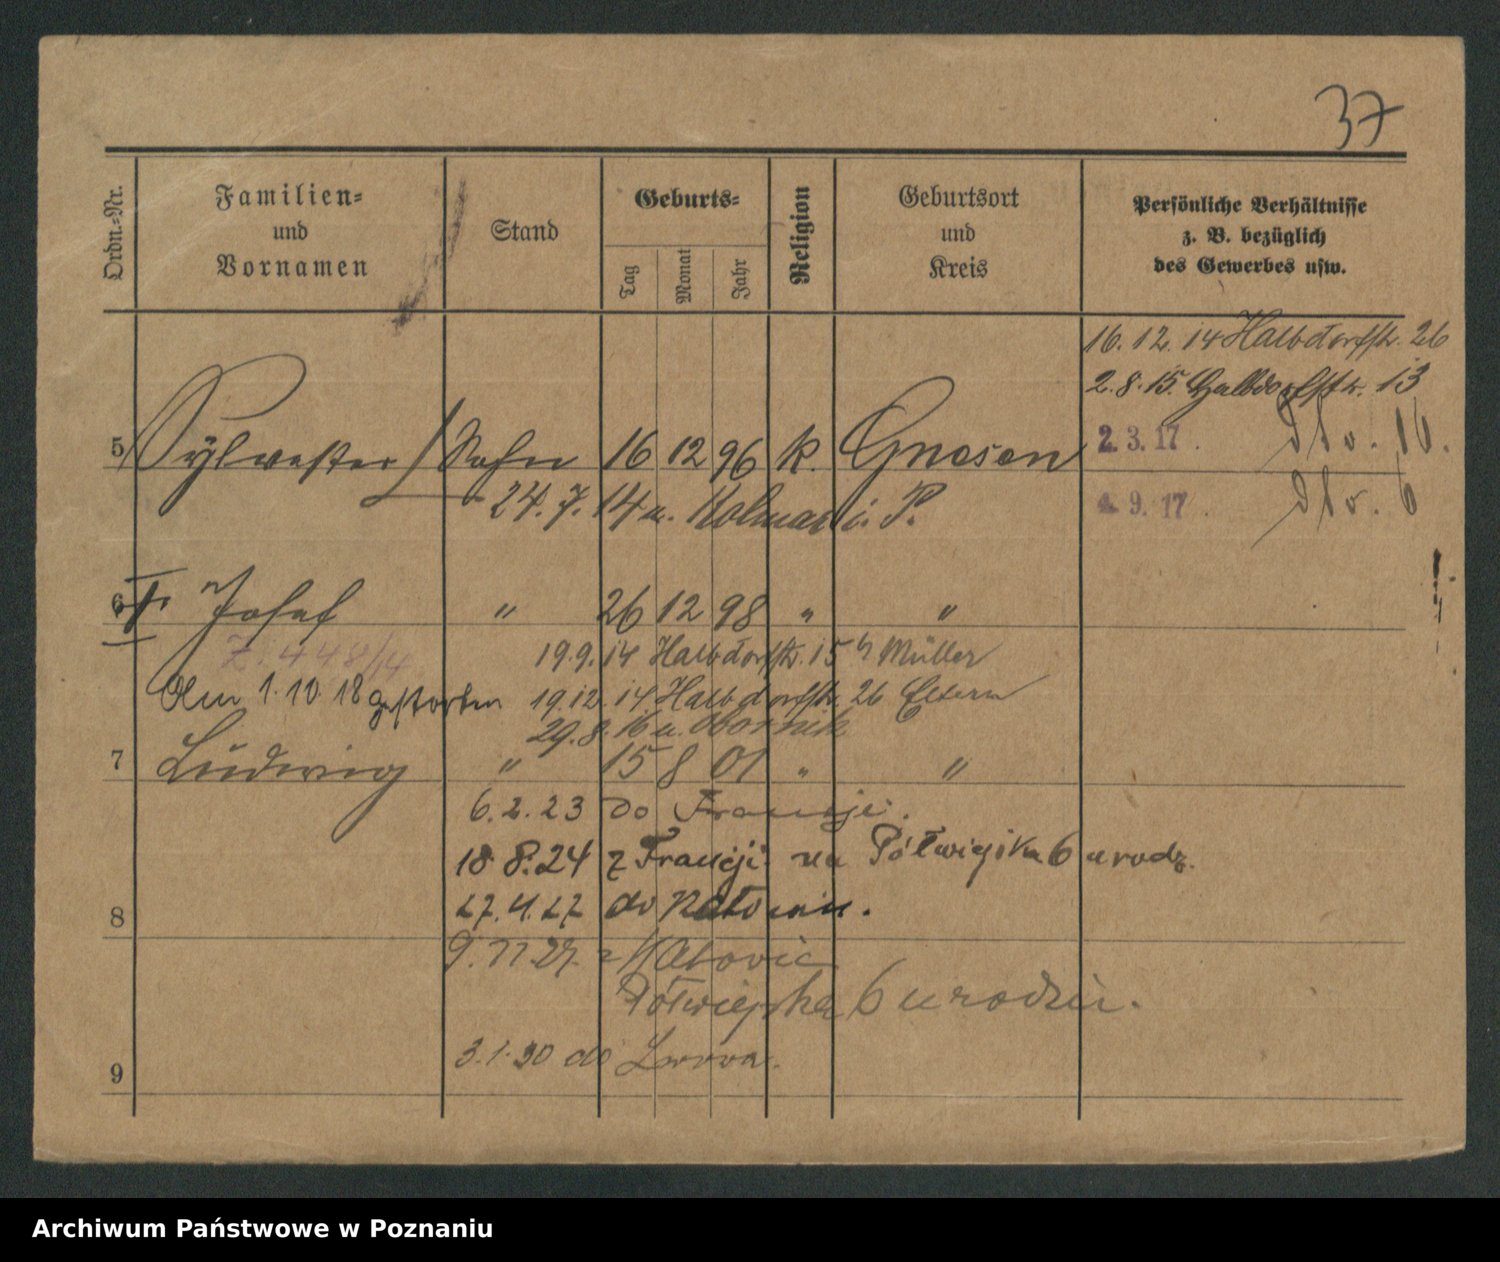 37
Ordn.-Nr.
Familien-
und
Vornamen
Stand
Geburts-
Tag
Monat
Jahr
Religion
Geburtsort
und
Kreis
Persönliche Verhältnisse
z. B. bezüglich
des Gewerbes usw.
16. 12. 14 Halbdorfstr. 26
2. 8. 15. Halbdorfstr. 13
5 Sylvester Sohn 16 12 96 k. Gnesen
2. 3. 17. dto. 16.
24. 7. 14 n. Kolmar i. P.
4. 9. 17. dto. 6
6 Josef " 26 12 98 " "
448/14
19. 9. 14 Halbdorfstr. 15 b Müller
Am 1. 10. 18 gestorben
19. 12. 14. Halbdorfstr. 26 Eltern
29. 8. 16 n. Obornik
7 Ludwig " 15 8 01 " "
6. 2. 23 do Francji.
18. 8. 24 z Francji na Półwiejska 6 u rodz.
8
27. 4. 27 do Katowic.
9. 11 27 z Katowic
Półwiejska 6 u rodzic.
3. 1. 30 do Lwowa.
9
Archiwum Państwowe w Poznaniu